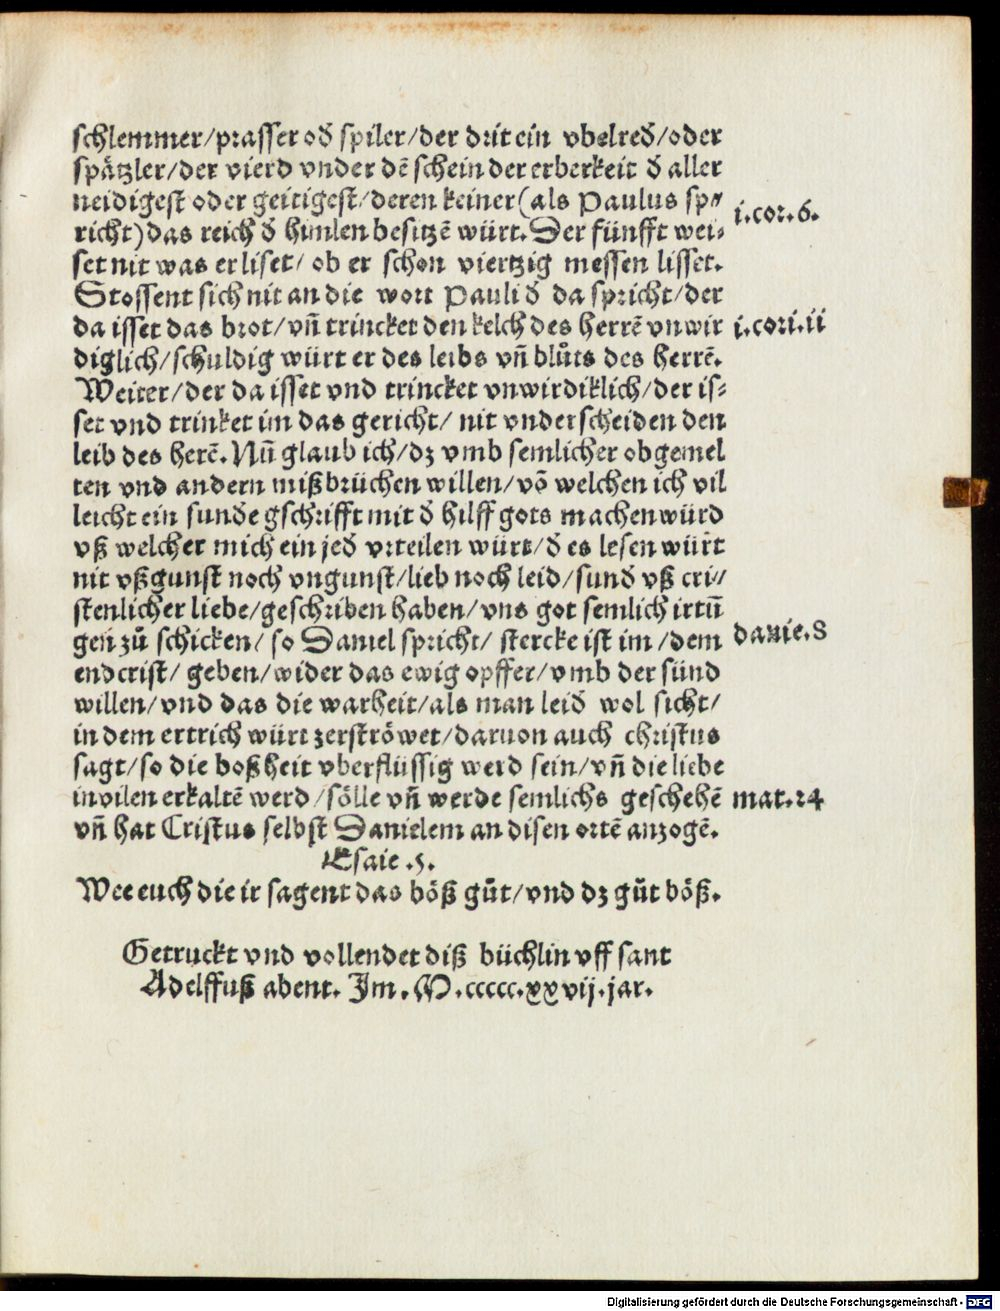 schlemmer/prasser od̄ spiler/der drit ein vbelred̄/oder
spätzler/der vierd vnder dē schein der erberkeit d̄ aller
neidigest oder geitigest/deren keiner (als Paulus sp⸗
richt) das reich d̄ himlen besitzē würt. Der fünfft wei⸗
set nit was er liset/ ob er schon viertzig messen lisset.
Stossent sich nit an die wort Pauli d̄ da spricht/der
da isset das brot/vñ trincket den kelch des herrē vnwir
diglich/schuldig würt er des leibs vñ blůts des herrē.
Weiter/der da isset vnd trincket vnwirdiklich/der is⸗
set vnd trinket im das gericht/ nit vnderscheiden den
leib des herē. Nū glaub ich/dz vmb semlicher obgemel
ten vnd andern mißbrüchen willen/vō welchen ich vil
leicht ein sunde gschrifft mit d̄ hilff gots machen würd
vß welcher mich ein jed̄ vrteilen würt/d̄ es lesen würt
nit vß gunst noch vngunst/lieb noch leid/sund̄ vß cri⸗
stenlicher liebe/geschriben haben/vns got semlich irtū
gen zů schicken/ so Daniel spricht/ stercke ist im/dem
endcrist/ geben/wider das ewig opffer/vmb der sünd
willen/vnd das die warheit/als man leid̄ wol sicht/
in dem ertrich würt zerströwet/daruon auch christus
sagt/so die boßheit vberflüssig werd sein/vñ die liebe
in vilen erkaltē werd/sölle vñ werde semlichs geschehē
vñ hat Cristus selbst Danielem an disen ortē anzogē.
i.cor.6.
i.cori.ii
danie.8
mat.24
Esaie .5.
Wee euch die ir sagent das böß gůt/vnd dz gůt böß.
Getruckt vnd vollendet diß büchlin vff sant
Adelffuß abent. Im.M.ccccc.xxvij.jar.
Digitalisierung gefördert durch die Deutsche Forschungsgemeinschaft - DFG